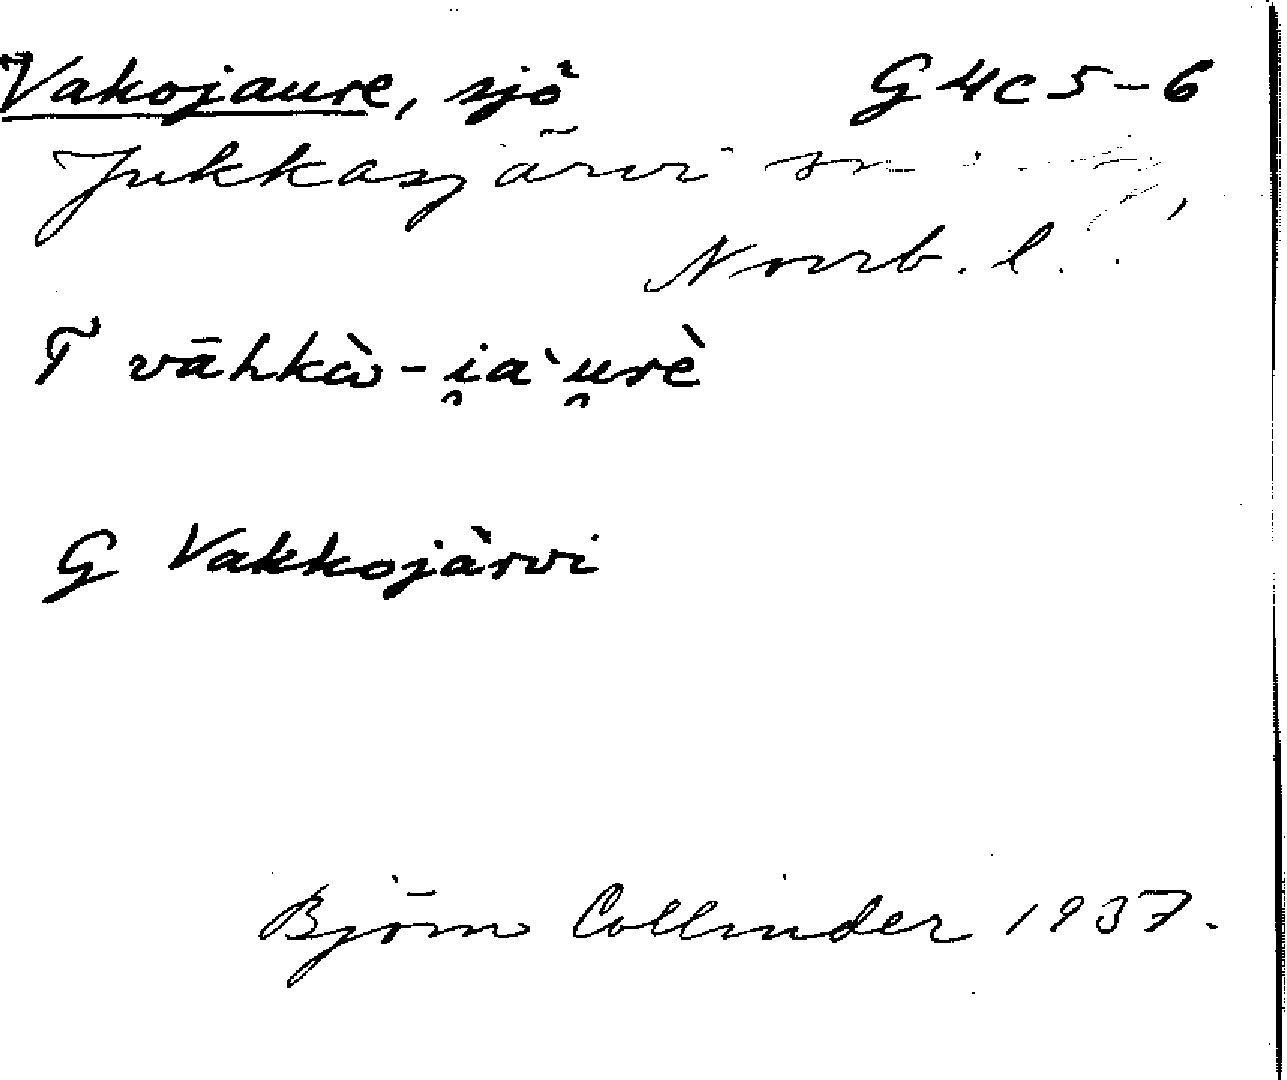 Vakojaure, sjö G4c5-6
Jukkasjärvi sn
Norrb. l.
T vāhkɷ̀-i̯a`u̯rè
G Vakkojärvi
Björn Collinder 1937.